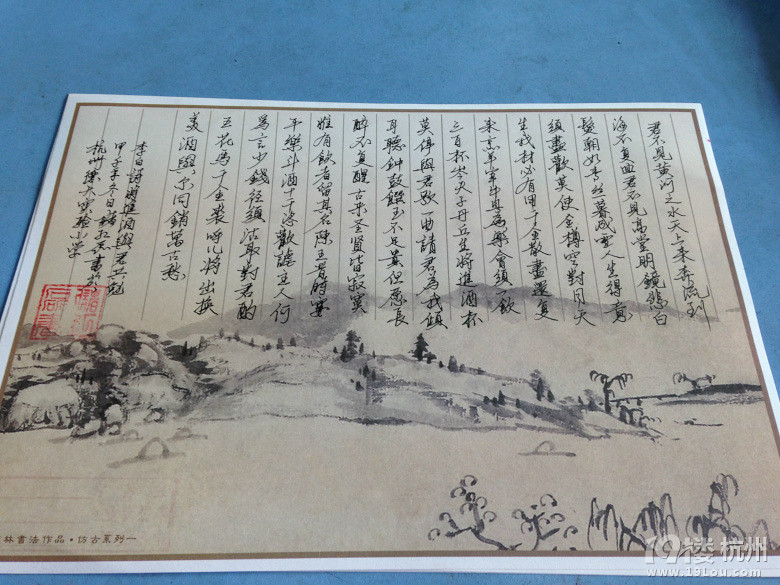 君不見黃河之水天上來奔流到
海不復回君不見高堂明鏡悲白
髮朝如青絲暮成雪人生得意
須盡歡莫使金樽空對月天
生我材必有用千金散盡還復
來烹羊宰牛且為樂會須一飲
三百杯岑夫子丹丘生將進酒杯
莫停與君歌一曲請君為我傾
耳聽鐘鼓饌玉不足貴但愿長
醉不復醒古來聖賢皆寂寞
惟有飲者留其名陳王昔時宴
平樂斗酒十千恣歡謔主人何
為言少錢徑須沽取對君酌
五花馬千金裘呼兒將出換
美酒與尔同銷萬古愁
李白詩將進酒與君共勉
冬日
杭州 實驗小學
林書法作品·仿古系列一
19樓 杭州
www.19lou.com